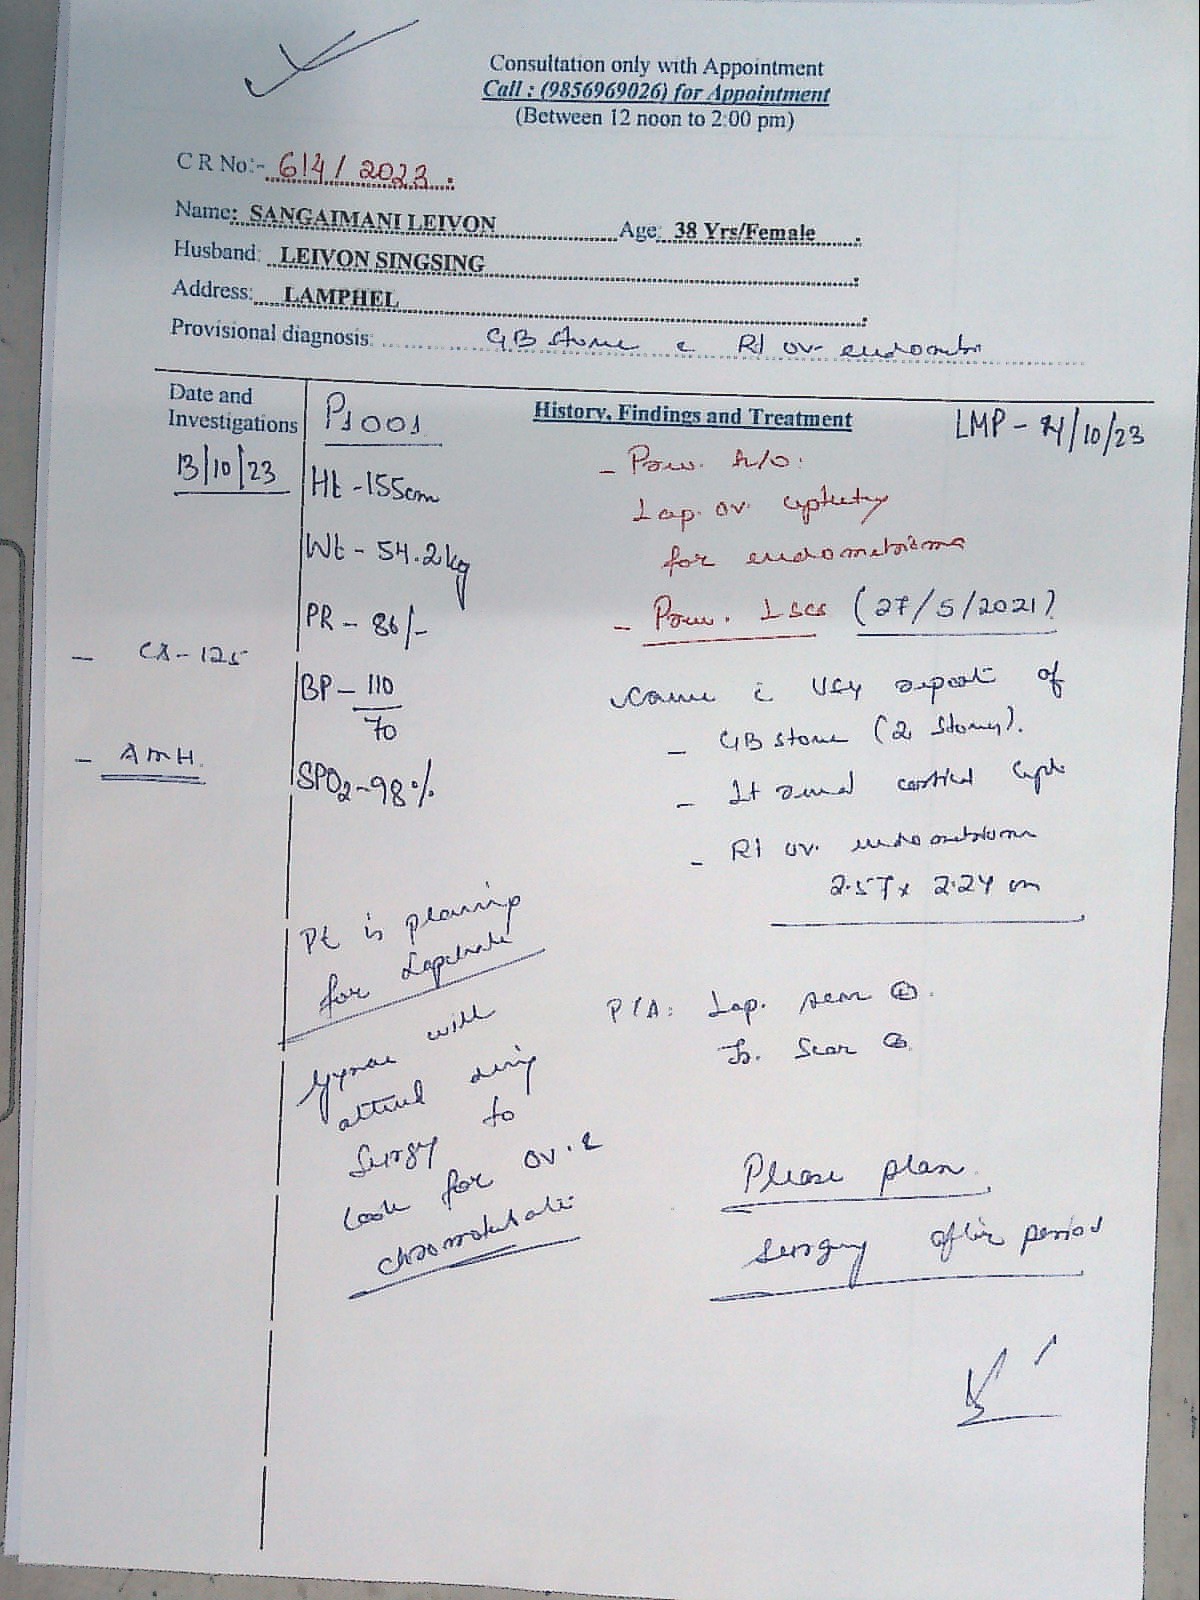 Consultation only with Appointment
Call : (9856969026) for Appointment
(Between 12 noon to 2:00 pm)
C R No:- 614/2023.
Name: SANGAIMANI LEIVON Age: 38 Yrs/Female
Husband: LEIVON SINGSING
Address: LAMPHEL
Provisional diagnosis: GB stone c Rt ov
Date and
Investigations
History, Findings and Treatment
P1001
LMP - /10/23
13/10/23
Ht - 155cm
Wt - 54.2kg
PR - 86/-
BP - 110
70
SPO2 - 98%
- CA-125
- AMH.
- Prev. h/o:
Lap. ov.
for endometrioma
- Prev. LSCS (27/5/2021)
came c USG report of
- GB stone (2 stones).
- Lt renal cortical cyst
- Rt ov. endometrioma
2.57 x 2.24 cm
Pt is planning
for
Gynae will
attend during
Surgery to
look for ov. &
P/A: Lap. scar ⊕.
Scar ⊕.
Please plan
surgery after period